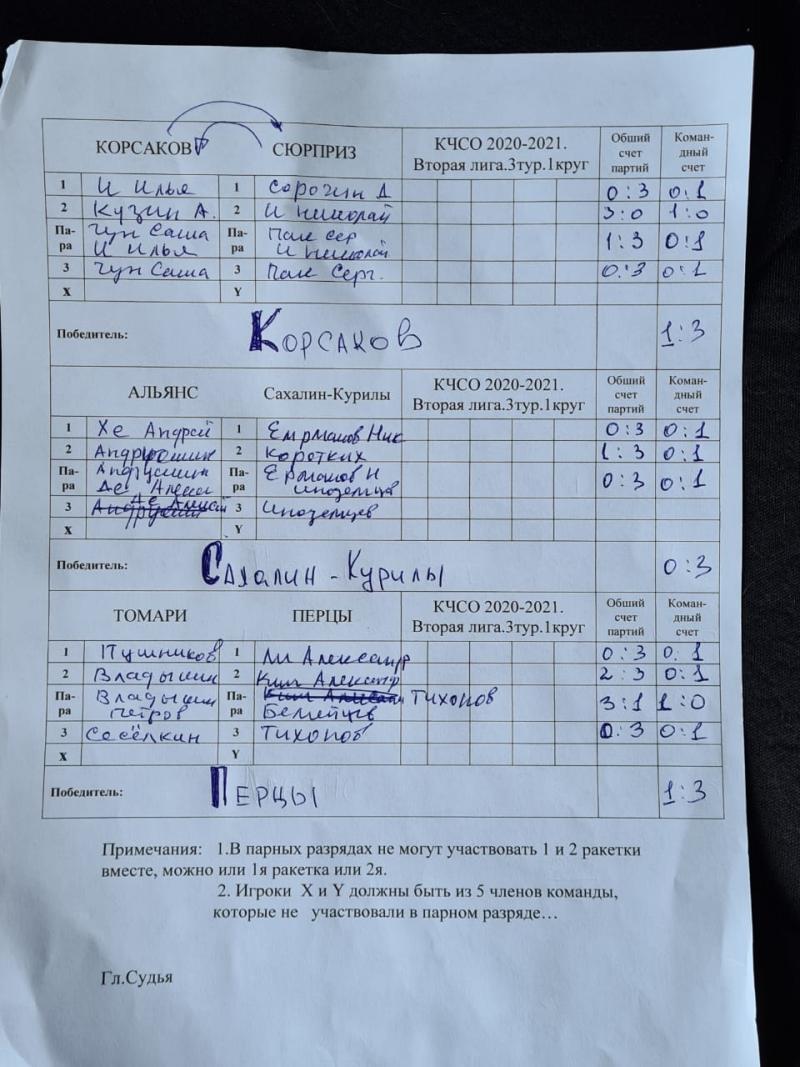 КОРСАКОВ СЮРПРИЗ КЧСО 2020-2021. Вторая лига.3тур.1круг Общий счет партий Коман-дный счет
1 И Илья 1 Сорочин Д 0:3 0:1
2 Кузин А. 2 И Николай 3:0 1:0
Па-ра Чун Саша И Илья Па-ра Пак Сер И Николай 1:3 0:1
3 Чун Саша 3 Пак Серг. 0:3 0:1
X Y
Победитель: КОРСАКОВ 1:3
АЛЬЯНС Сахалин-Курилы КЧСО 2020-2021. Вторая лига.3тур.1круг Общий счет партий Коман-дный счет
1 Хе Андрей 1 Ник 0:3 0:1
2 Андрюшин 2 Коротких 1:3 0:1
Па-ра Де Па-ра Ермаков Н Иноземцев 0:3 0:1
3 Де Алексей 3 Иноземцев
X Y
Победитель: САХАЛИН-КУРИЛЫ 0:3
ТОМАРИ ПЕРЦЫ КЧСО 2020-2021. Вторая лига.3тур.1круг Общий счет партий Коман-дный счет
1 Пушников 1 Ли Александр 0:3 0:1
2 Владыкин 2 Ким Александр 2:3 0:1
Па-ра Владыкин Петров Па-ра Тихонов 3:1 1:0
3 Сосёлкин 3 Тихонов 0:3 0:1
X Y
Победитель: ПЕРЦЫ 1:3
Примечания: 1.В парных разрядах не могут участвовать 1 и 2 ракетки
вместе, можно или 1я ракетка или 2я.
2. Игроки X и Y должны быть из 5 членов команды,
которые не участвовали в парном разряде…
Гл.Судья